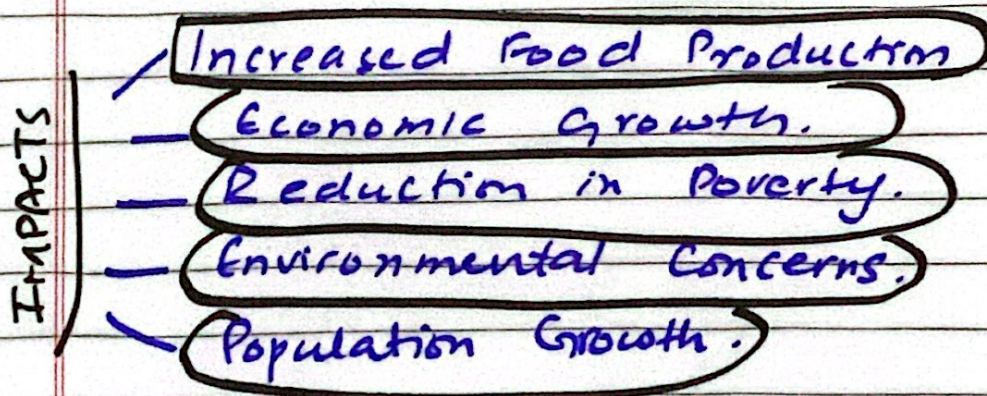 IMPACTS
Increased Food Production
Economic Growth.
Reduction in Poverty.
Environmental Concerns.
Population Growth.